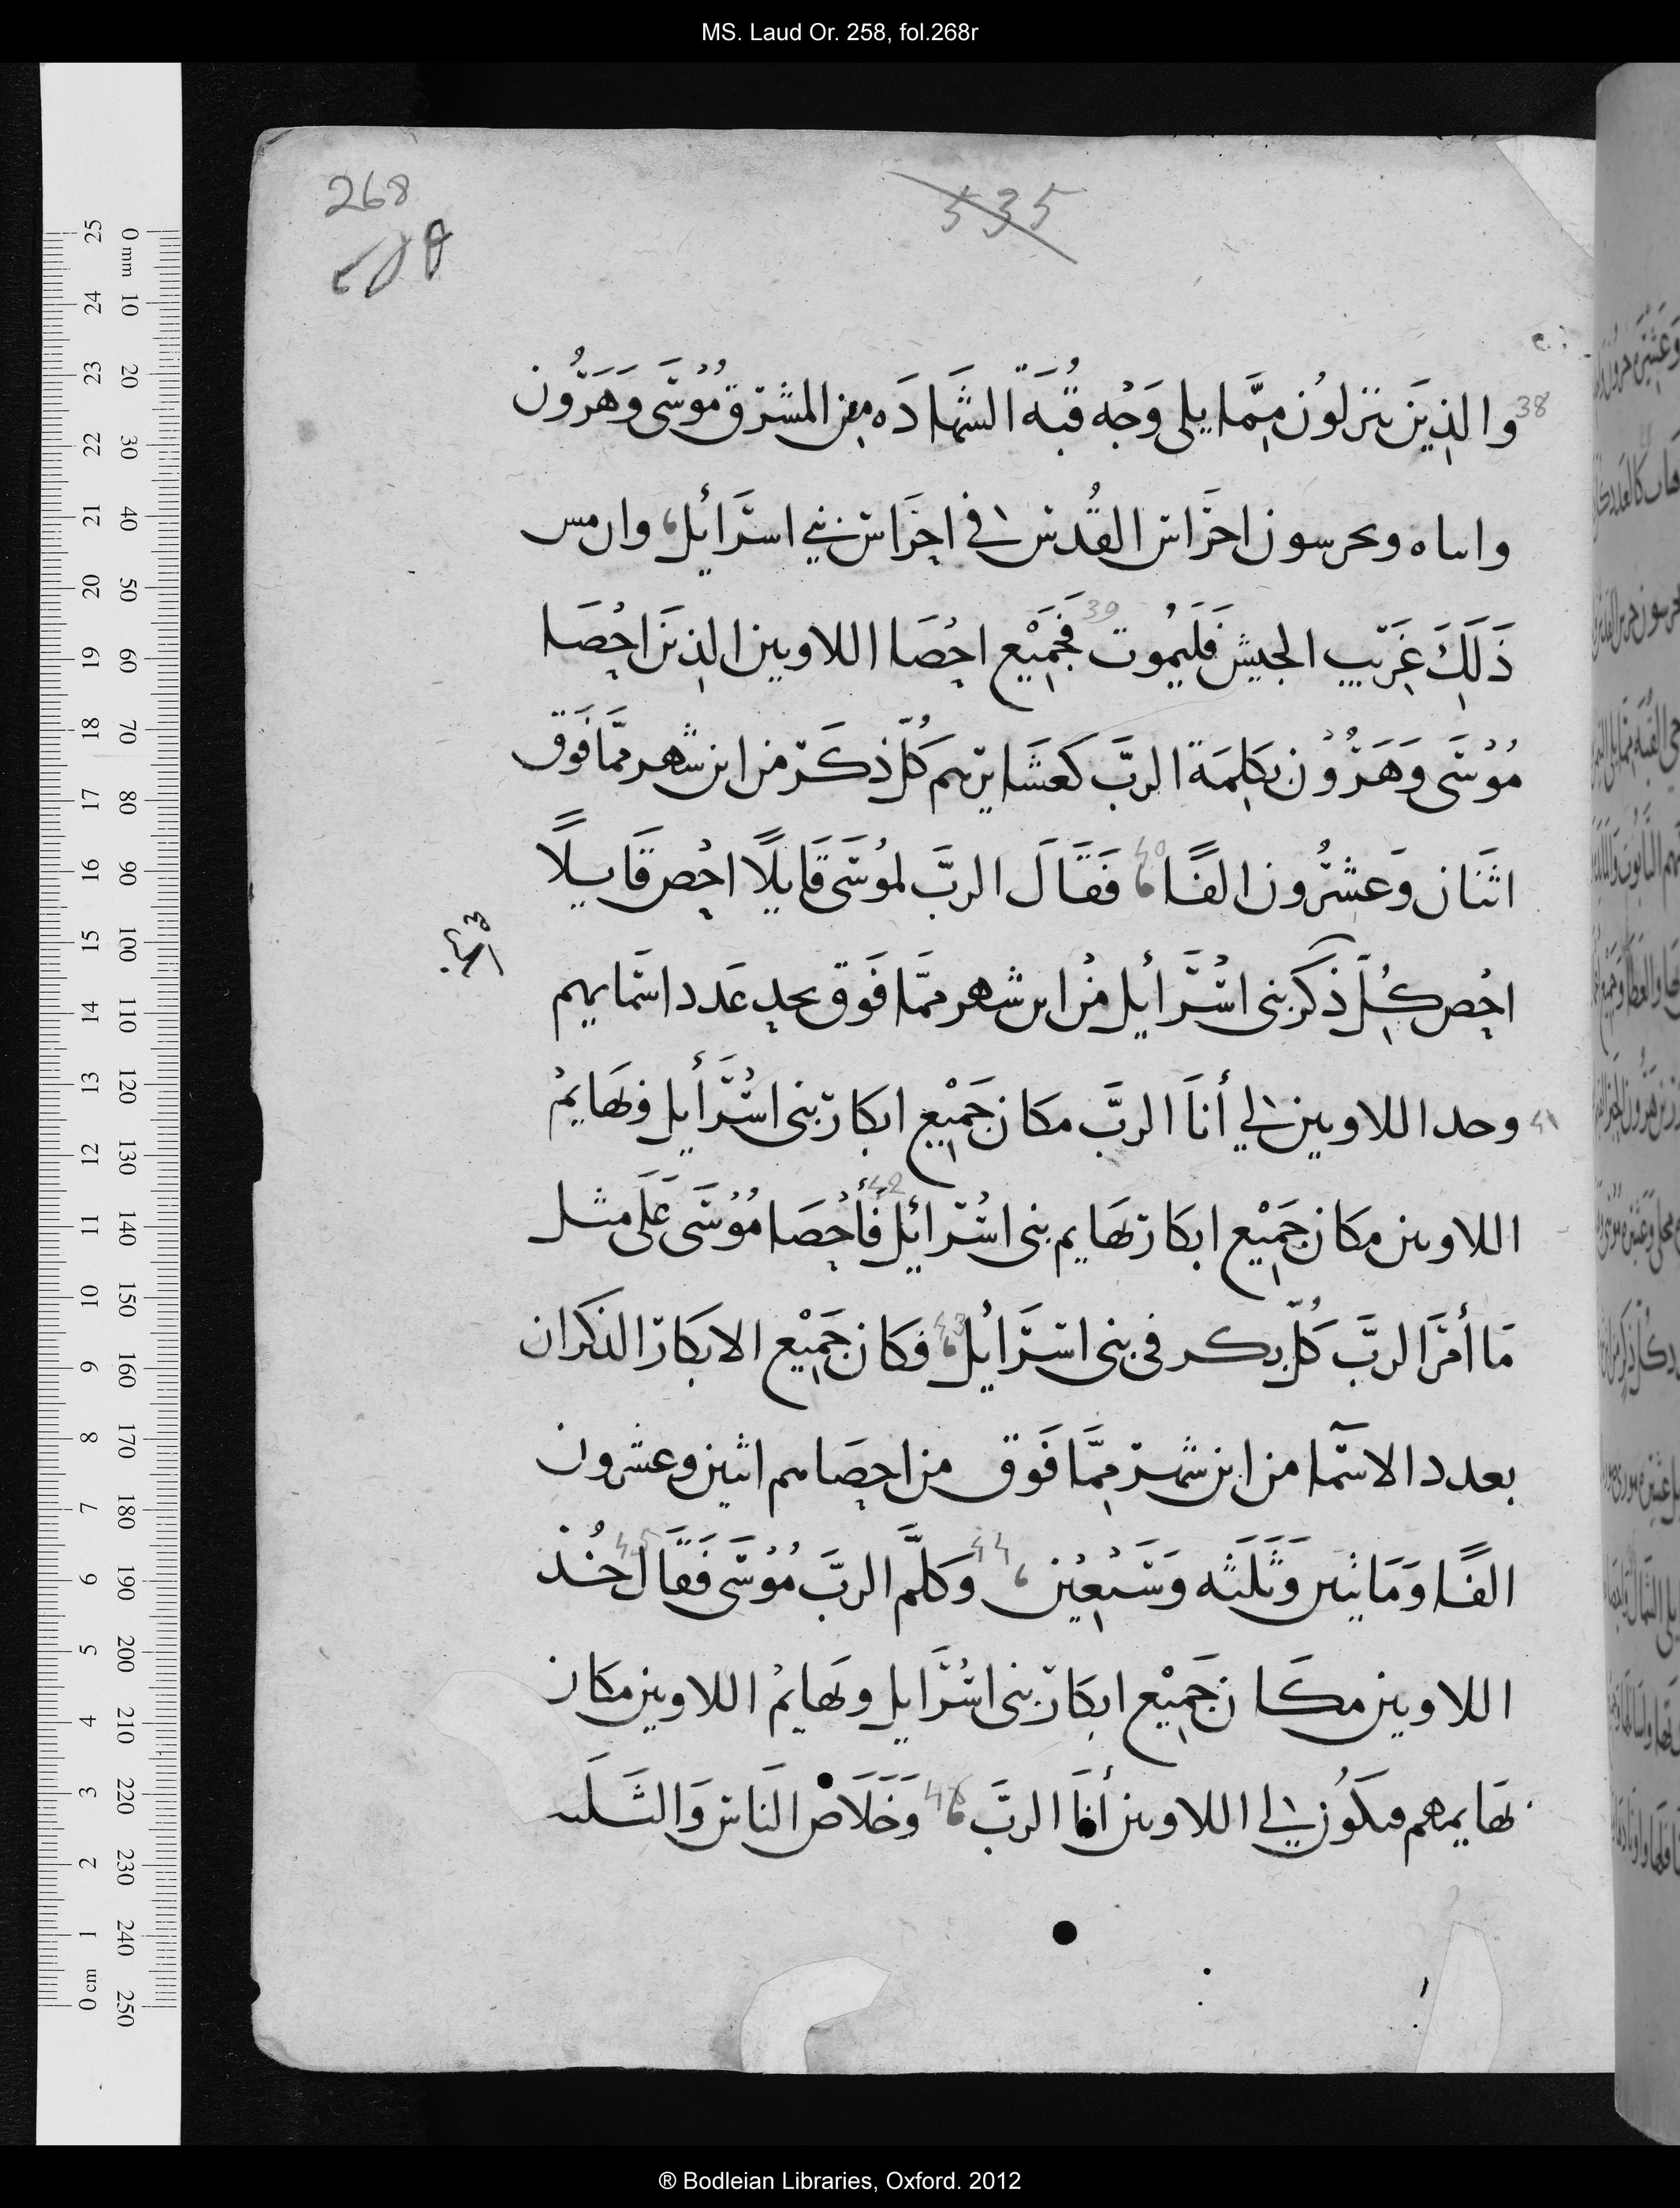 MS. Laud Or. 258, fol.268r
268
535
38 والذِين ينزلوُن مِمَّا يلى وَجْه قُبَةً الشَهادَه مِن المشرق مُوُسَى وَهَرُون
وابناه ويحرسون احَراس القُدس في احَراس بني اسرَأيل وان مس
ذَلَكَ غَرَيب الجيش فَليمُوت 39 فجَمِيْع احُصَا اللاويين الذِينَ احُصَا
مُوُسَى وَهَرُوُن بكلِمَة الربَّ كعشَايرهم كُلّ ذكَر من ابن شهر ممَّا فَوق
اثنَان وَعشرُون الفًا 40 فَقَالَ الربَّ لموُسَى قَايلًا احُص قَايلًا
احُص كُلّ ذكر بنى اسُرَأيل منُ ابن شهر ممَّا فَوق يحد عَدد اسَمايهم
41 وحد اللاويين لي أنَا الربَّ مكان جَمِيْع ابكار بنى اسُرَأيل وبهَايمُ
اللاوين مكان جَمِيْع ابكار بهَايم بنى اسُرائيل 42 فأحُصَا مُوُسَى عَلَى مثل
مَا أمَر الربَّ كُلّ بكر فى بنى اسرَايُل 43 فكان جَمِيْع الابكار الذكران
بعدد الاسَما من ابن شهر مِمَّا فَوق من احصَاهم اثنين وعشرون
الفًا وَمَاتين وَثلَثه وَسَبُعِين 44 وَكلَّم الربَّ مُوُسَى فَقَال 45 خُذ
اللاويين مكَان جَمِيْع ابكَار بنى اسُرَايل وبهَايمُ اللاويين مكان
بهَايمهم فيكوُن لي اللاوين أنَا الربَّ 46 وَخَلَاص الناس وَالثَلثه
® Bodleian Libraries, Oxford. 2012